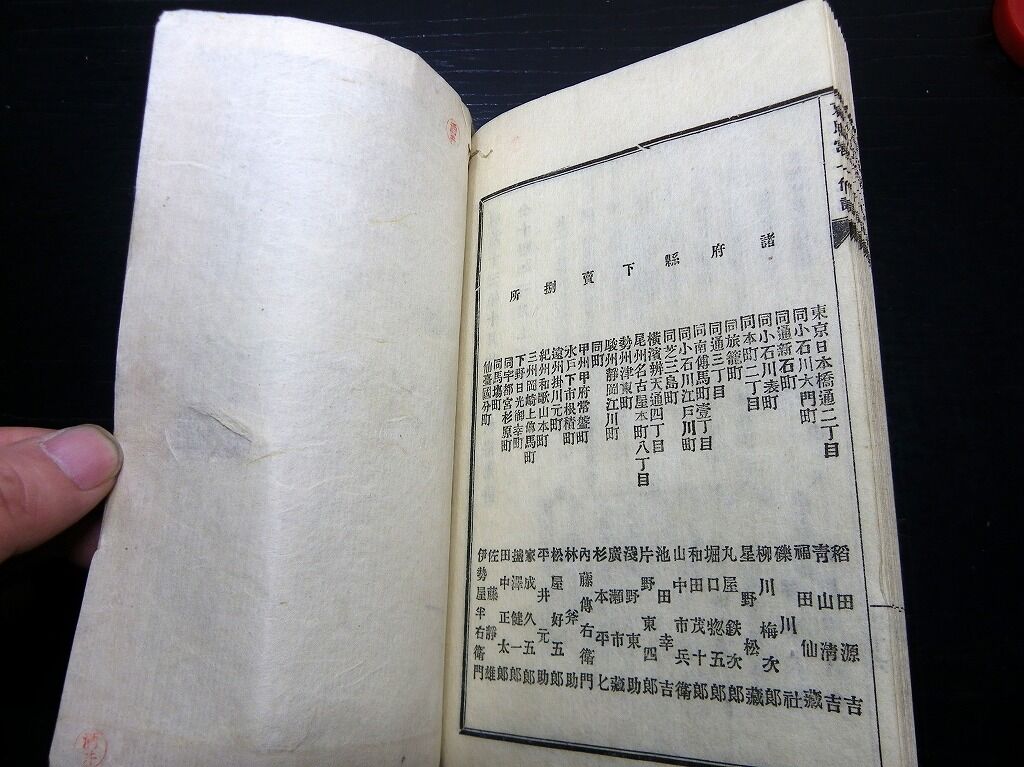 諸府縣下賣捌所
東京日本橋通二丁目 稻田源吉
同小石川大門町 青山清吉
同通新石町 福田仙藏
同小石川表町 礒川社
同本町二丁目 柳川梅次郎
同旅籠町 星野松藏
同通三丁目 丸屋鉄次郎
同南傳馬町壹丁目 堀口惣五郎
同小石川江戸川町 和田茂十郎
同芝三島町 山中市兵衛
横濱辨天通四丁目 池田幸吉
尾州名古屋本町八丁目 片野東四郎
勢州津東町 淺野東助
駿州靜岡江川町 廣瀬市藏
同町 杉本平七
甲州甲府常盤町 内藤傳右衛門
水戸下市根積町 林斧助
遠州掛川元町 松屋好五郎
紀州和歌山本町 平井元助
三州岡崎上傳馬町 家成久五郎
下野日光御幸町 澤健一郎
同宇都宮杉原町 田中正太郎
同馬塲町 佐藤靜雄
仙臺國分町 伊勢屋半右衛門